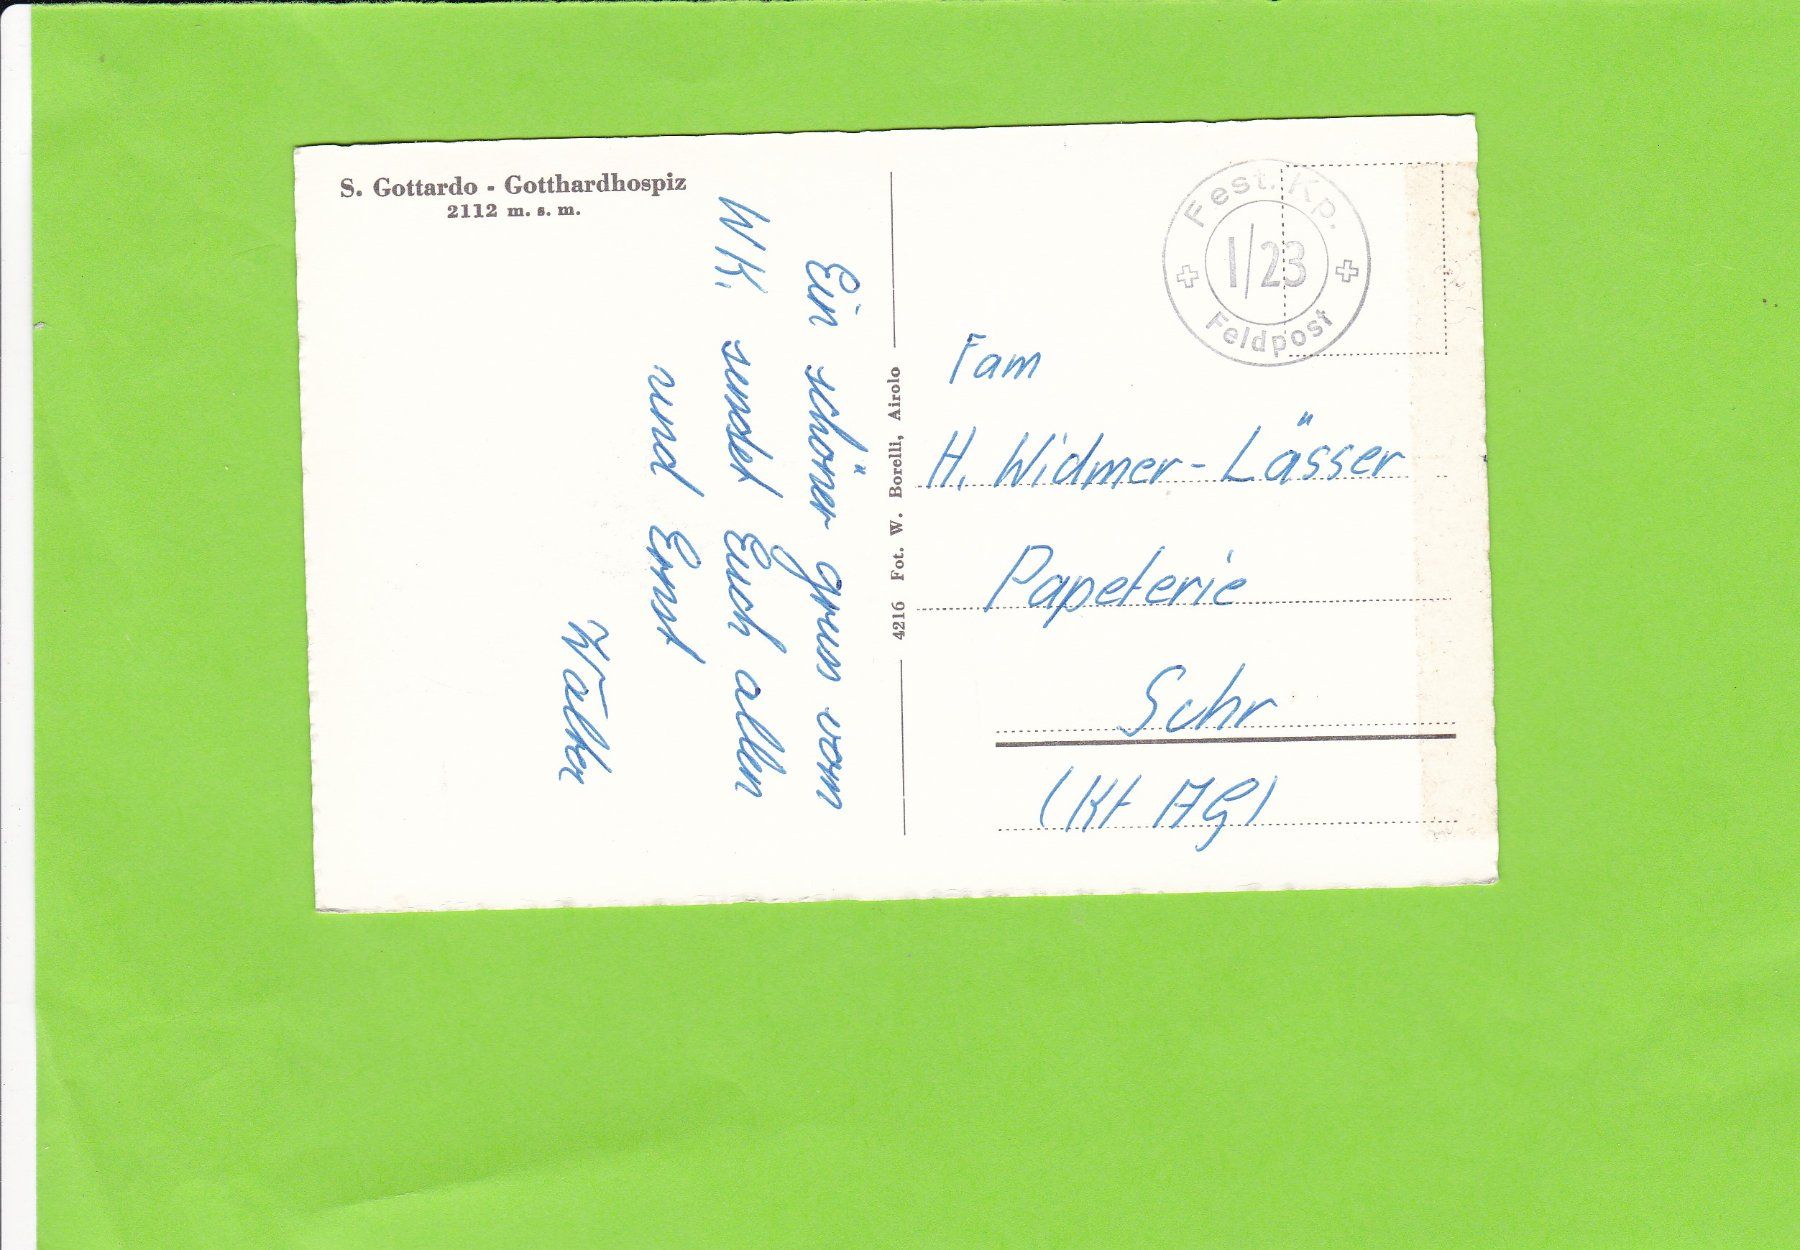 S. Gottardo - Gotthardhospiz
2112 m. s. m.
Ein schöner gruss vom
WK. sendet Euch allen
und Ernst
Walter
4216 Fot. W. Borelli, Airolo
Fest. Kp.
I/23
Feldpost
Fam
H. Widmer-Lässer
Papeterie
Suhr
(Kt AG)